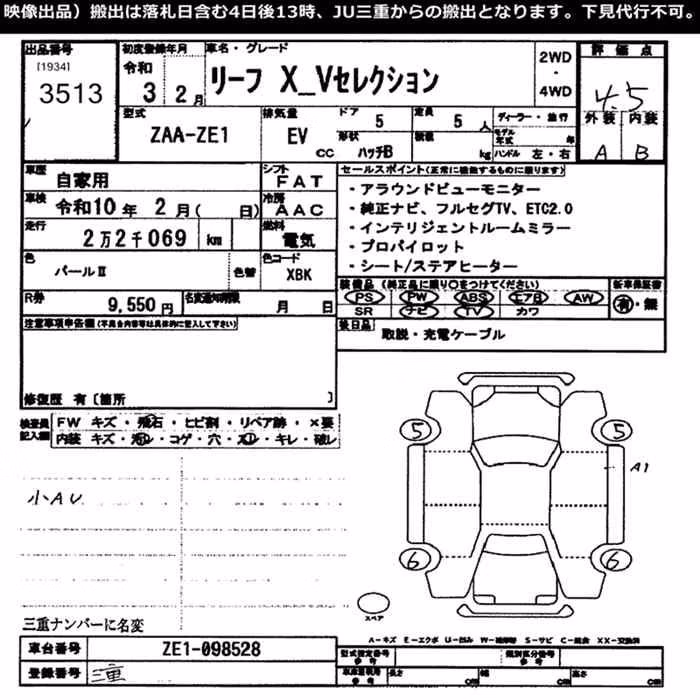 映像出品）搬出は落札日含む4日後13時、JU三重からの搬出となります。下見代行不可。
出品番号 初度登録年月 車名・グレード 2WD 評価点
[1934] 令和 リーフ X_Vセレクション ・ 4.5
3513 3 2月 4WD 外装 内装
型式 排気量 ドア 5 定員 5人 ディーラー・並行 A B
ZAA-ZE1 EV cc 形状 ハッチB 積載 kg モデル年式 年
ハンドル 左・右
車歴 自家用 シフト FAT セールスポイント(正常に機能するものに限ります)
車検 令和10年 2月( 日) 冷房 AAC ・アラウンドビューモニター
・純正ナビ、フルセグTV、ETC2.0
走行 2万2千069 km 燃料 電気 ・インテリジェントルームミラー
・プロパイロット
色 パールⅡ 色替 色コード XBK ・シート/ステアヒーター
R券 9,550円 名変通知期限 月 日 装備品(純正品に限り○をつけてください) 新車保証書
PS PW ABS エアB AW 有・無
SR ナビ TV カワ
注意事項申告欄(不具合内容等は具体的に記入して下さい) 後日品 取説・充電ケーブル
修復歴 有〔箇所 〕
検査員記入欄 FW キズ・飛石・ヒビ割・リペア跡・×要
内装 キズ・汚レ・コゲ・穴・スレ・キレ・破レ
5 5
A1
小AU
6 6
スペア
三重ナンバーに名変
A-キズ E-エクボ U-凹み W-補修跡 S-サビ C-腐食 XX-交換済
車台番号 ZE1-098528 型式指定番号 参考 類別区分番号 参考
登録番号 三重 車庫証明用 参考 長さ cm 幅 cm 高さ cm